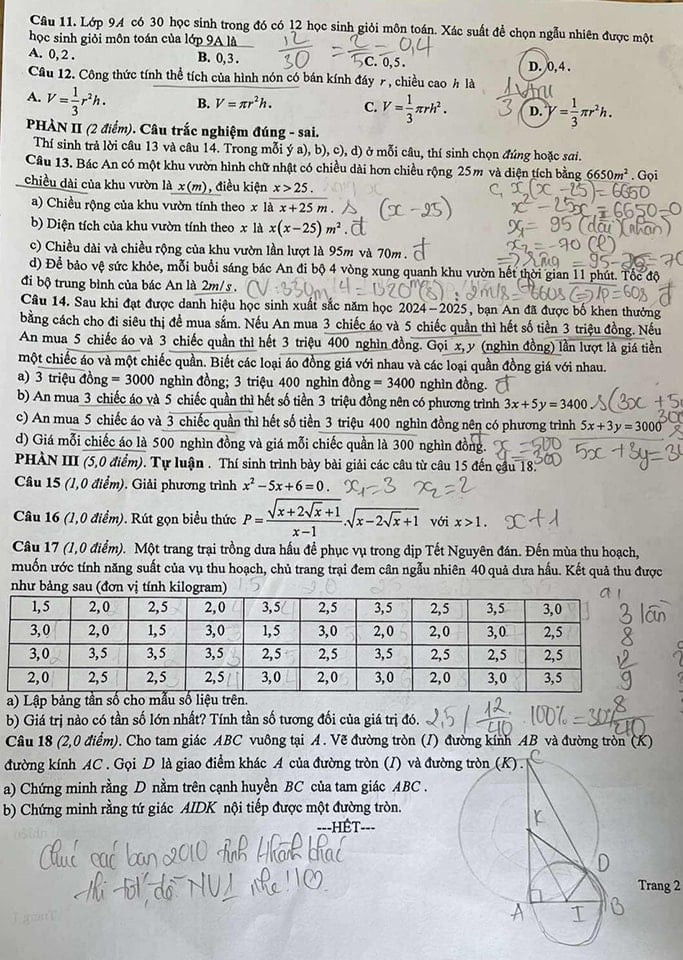 Câu 11. Lớp 9A có 30 học sinh trong đó có 12 học sinh giỏi môn toán. Xác suất để chọn ngẫu nhiên được một
học sinh giỏi môn toán của lớp 9A là 12/30 = 2/5 = 0,4
A. 0,2. B. 0,3. C. 0,5. D. 0,4.
Câu 12. Công thức tính thể tích của hình nón có bán kính đáy r, chiều cao h là
A. V = 1/3 r²h. B. V = πr²h. C. V = 1/3 πrh². D. V = 1/3 πr²h.
PHẦN II (2 điểm). Câu trắc nghiệm đúng - sai.
Thí sinh trả lời câu 13 và câu 14. Trong mỗi ý a), b), c), d) ở mỗi câu, thí sinh chọn đúng hoặc sai.
Câu 13. Bác An có một khu vườn hình chữ nhật có chiều dài hơn chiều rộng 25m và diện tích bằng 6650m². Gọi
chiều dài của khu vườn là x(m), điều kiện x > 25. c, x(x - 25) = 6650
a) Chiều rộng của khu vườn tính theo x là x + 25 m. s (x - 25) x² - 25x - 6650 = 0
b) Diện tích của khu vườn tính theo x là x(x - 25) m². đ x₁ = 95 (dài) (nhận)
c) Chiều dài và chiều rộng của khu vườn lần lượt là 95m và 70m. đ x₂ = -70 (l)
=> rộng = 95 - 25 = 70
d) Để bảo vệ sức khỏe, mỗi buổi sáng bác An đi bộ 4 vòng xung quanh khu vườn hết thời gian 11 phút. Tốc độ
đi bộ trung bình của bác An là 2m/s. (V: 330m . 4 = 1320m : 2m/s = 660s 1p = 60s đ
Câu 14. Sau khi đạt được danh hiệu học sinh xuất sắc năm học 2024 – 2025, bạn An đã được bố khen thưởng
bằng cách cho đi siêu thị để mua sắm. Nếu An mua 3 chiếc áo và 5 chiếc quần thì hết số tiền 3 triệu đồng. Nếu
An mua 5 chiếc áo và 3 chiếc quần thì hết 3 triệu 400 nghìn đồng. Gọi x, y (nghìn đồng) lần lượt là giá tiền
một chiếc áo và một chiếc quần. Biết các loại áo đồng giá với nhau và các loại quần đồng giá với nhau.
a) 3 triệu đồng = 3000 nghìn đồng; 3 triệu 400 nghìn đồng = 3400 nghìn đồng. đ
b) An mua 3 chiếc áo và 5 chiếc quần thì hết số tiền 3 triệu đồng nên có phương trình 3x + 5y = 3400 s (3x + 5
c) An mua 5 chiếc áo và 3 chiếc quần thì hết số tiền 3 triệu 400 nghìn đồng nên có phương trình 5x + 3y = 3000 s
d) Giá mỗi chiếc áo là 500 nghìn đồng và giá mỗi chiếc quần là 300 nghìn đồng. đ x = 500 y = 300 5x + 3y = 34
PHẦN III (5,0 điểm). Tự luận. Thí sinh trình bày bài giải các câu từ câu 15 đến câu 18.
Câu 15 (1,0 điểm). Giải phương trình x² – 5x + 6 = 0. x₁ = 3 x₂ = 2
Câu 16 (1,0 điểm). Rút gọn biểu thức P = √(x + 2√x + 1)/(x – 1) . √(x – 2√x + 1) với x > 1. x + 1
Câu 17 (1,0 điểm). Một trang trại trồng dưa hấu để phục vụ trong dịp Tết Nguyên đán. Đến mùa thu hoạch,
muốn ước tính năng suất của vụ thu hoạch, chủ trang trại đem cân ngẫu nhiên 40 quả dưa hấu. Kết quả thu được
như bảng sau (đơn vị tính kilogram)
1,5 2,0 2,5 2,0 3,5 2,5 3,5 2,5 3,5 3,0 3 lần
3,0 2,0 1,5 3,0 1,5 3,0 2,0 2,0 3,0 2,5 8
3,0 3,5 3,5 3,5 2,5 2,5 3,5 2,5 2,5 2,5 12
2,0 2,5 2,5 2,5 3,0 2,0 3,0 2,0 3,0 3,5 9
8
a) Lập bảng tần số cho mẫu số liệu trên.
b) Giá trị nào có tần số lớn nhất? Tính tần số tương đối của giá trị đó. 2,5 / 12/40 . 100% = 30% 40
Câu 18 (2,0 điểm). Cho tam giác ABC vuông tại A. Vẽ đường tròn (I) đường kính AB và đường tròn (K)
đường kính AC. Gọi D là giao điểm khác A của đường tròn (I) và đường tròn (K).
a) Chứng minh rằng D nằm trên cạnh huyền BC của tam giác ABC.
b) Chứng minh rằng tứ giác AIDK nội tiếp được một đường tròn.
---HẾT---
Chúc các bạn 2010 tỉnh khác
thi tốt, đỗ NV1 nhe!!
C
K
D
A I B
Trang 2